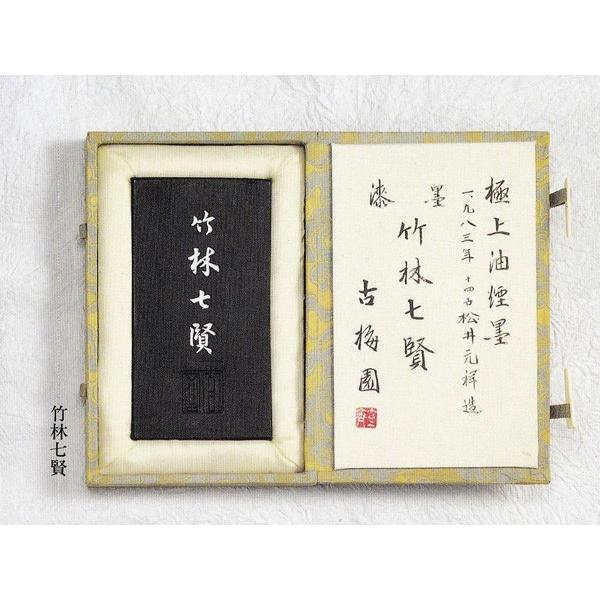 極上油煙墨
一九八三年 十四世松井元祥造
漆墨
竹林七賢
古梅園
竹林七賢
竹林七賢